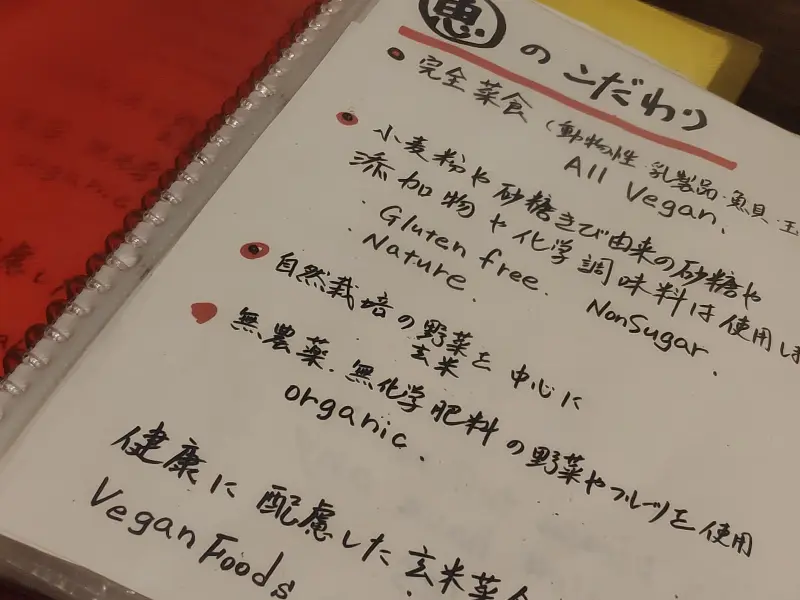 恵のこだわり
完全菜食(動物性・乳製品・魚貝・玉
All Vegan.
小麦粉や砂糖きび由来の砂糖や
添加物や化学調味料は使用しま
・Gluten free. NonSugar.
・Nature.
自然栽培の野菜を中心に
玄米
無農薬.無化学肥料の野菜やフルーツを使用
organic.
健康に配慮した玄米菜食
Vegan Foods